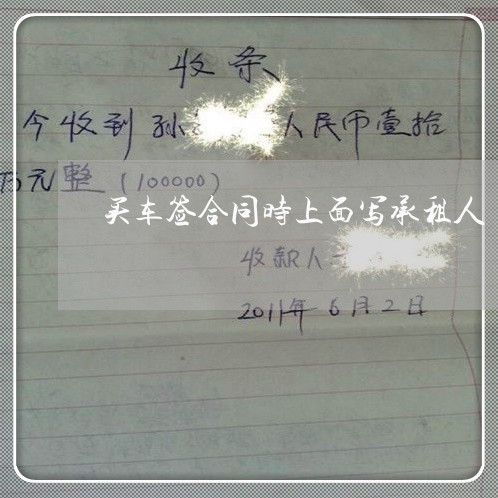 收条
今收到孙 人民币壹拾
万元整（100000）
买车签合同时上面写承租人
收款人
2011年6月2日